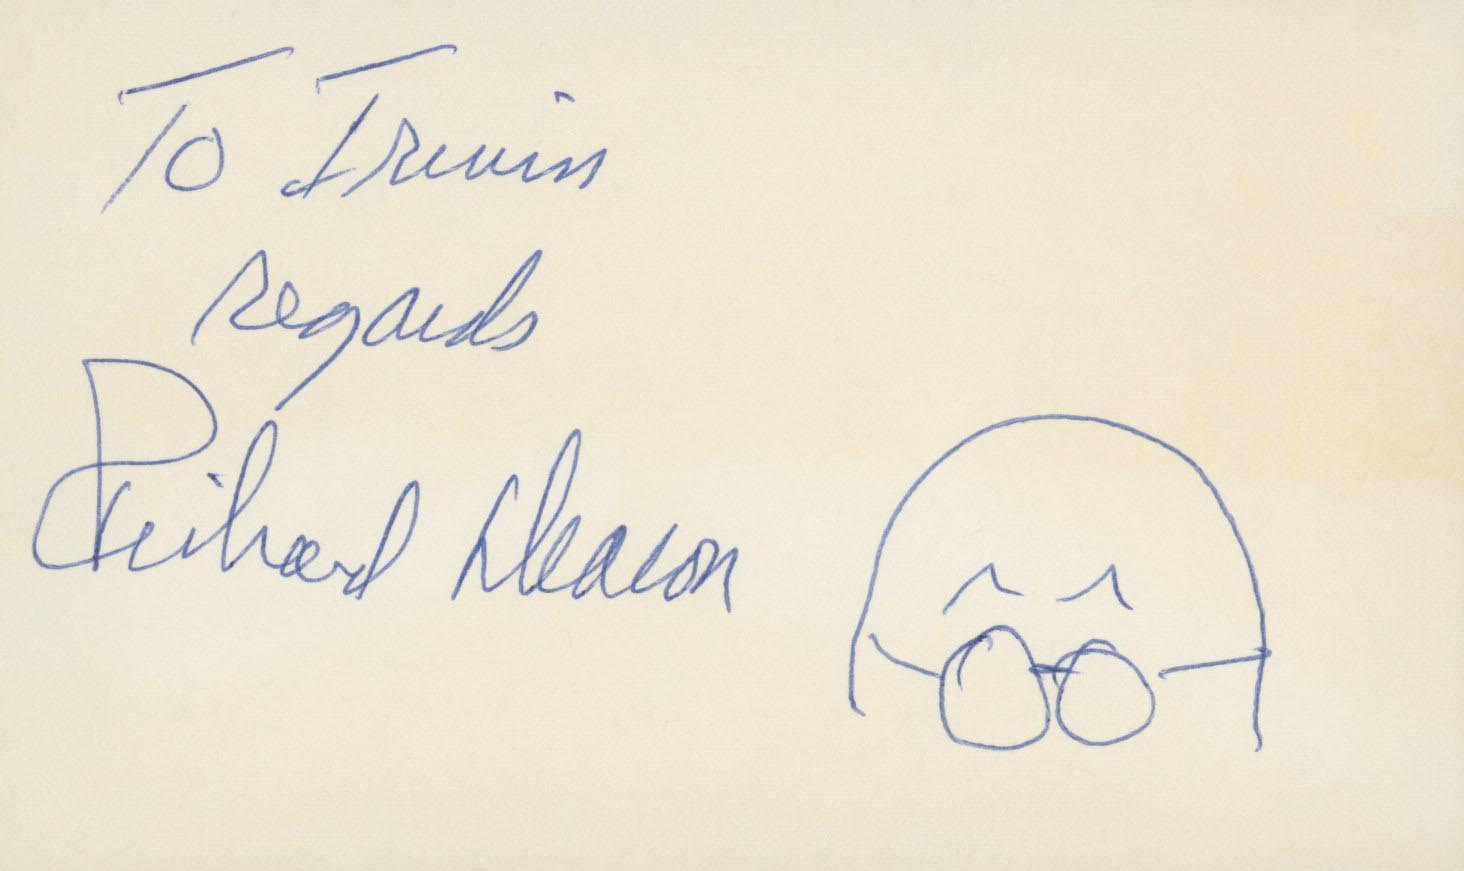 To Irwin
regards
Richard Deacon